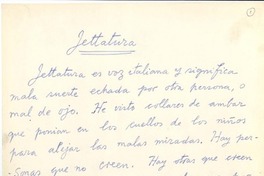 Jettatura
Jettatura es voz italiana y significa
mala suerte echada por otra persona, o
mal de ojo. He visto collares de ambar
que ponian en los cuellos de los niños
para alejar las malas miradas. Hay per-
-sonas que no creen. Hay otras que creen